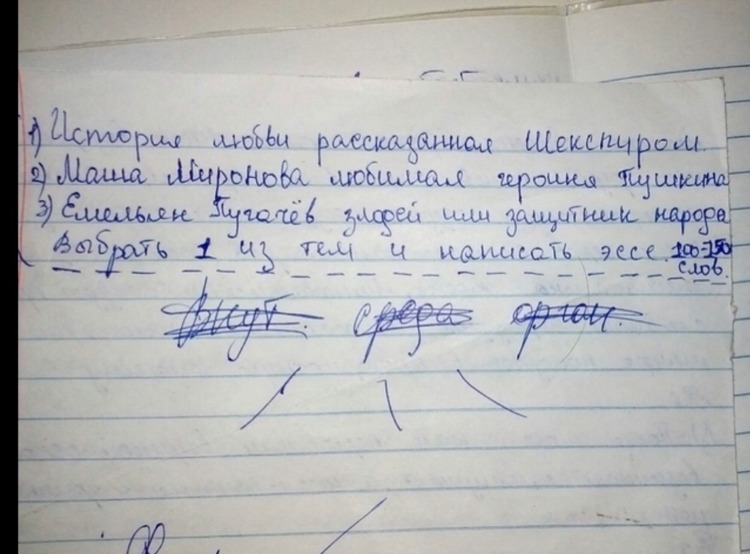 1) История любви рассказанная Шекспиром.
2) Маша Миронова любимая героиня Пушкина
3) Емельян Пугачёв злодей или защитник народа
Выбрать 1 из тем и написать эссе. 100-150
слов.
среда